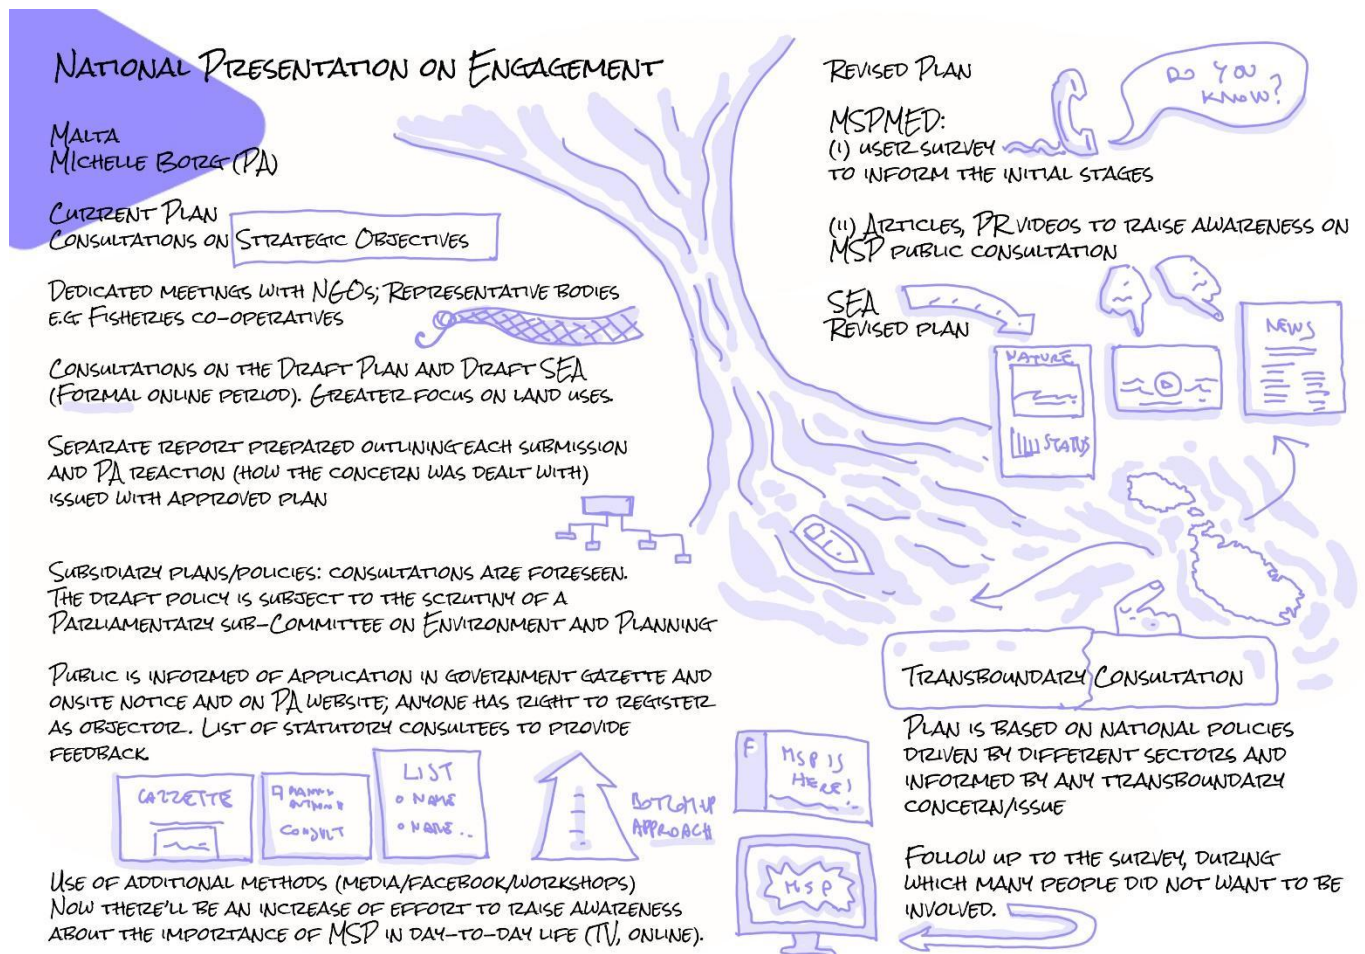 National Presentation on Engagement
Malta
Michelle Borg (PA)
Current Plan
Consultations on Strategic Objectives
Dedicated meetings with NGOs; Representative bodies
e.g. Fisheries co-operatives
Consultations on the Draft Plan and Draft SEA
(Formal online period). Greater focus on land uses.
Separate report prepared outlining each submission
and PA reaction (how the concern was dealt with)
issued with approved plan
Subsidiary plans/policies: consultations are foreseen.
The draft policy is subject to the scrutiny of a
Parliamentary sub-Committee on Environment and Planning
Public is informed of application in government gazette and
onsite notice and on PA website; anyone has right to register
as objector. List of statutory consultees to provide
feedback.
GAZZETTE
CONSULT
LIST
NAME
NAME..
BOTTOM UP
APPROACH
Use of additional methods (media/Facebook/workshops)
Now there'll be an increase of effort to raise awareness
about the importance of MSP in day-to-day life (TV, online).
Revised Plan
DO YOU
KNOW?
MSPMED:
(i) user survey
to inform the initial stages
(ii) Articles, PR videos to raise awareness on
MSP public consultation
SEA
Revised plan
NATURE
STATUS
NEWS
Transboundary Consultation
Plan is based on national policies
driven by different sectors and
informed by any transboundary
concern/issue
F
MSP IS
HERE!
MSP
Follow up to the survey, during
which many people did not want to be
involved.